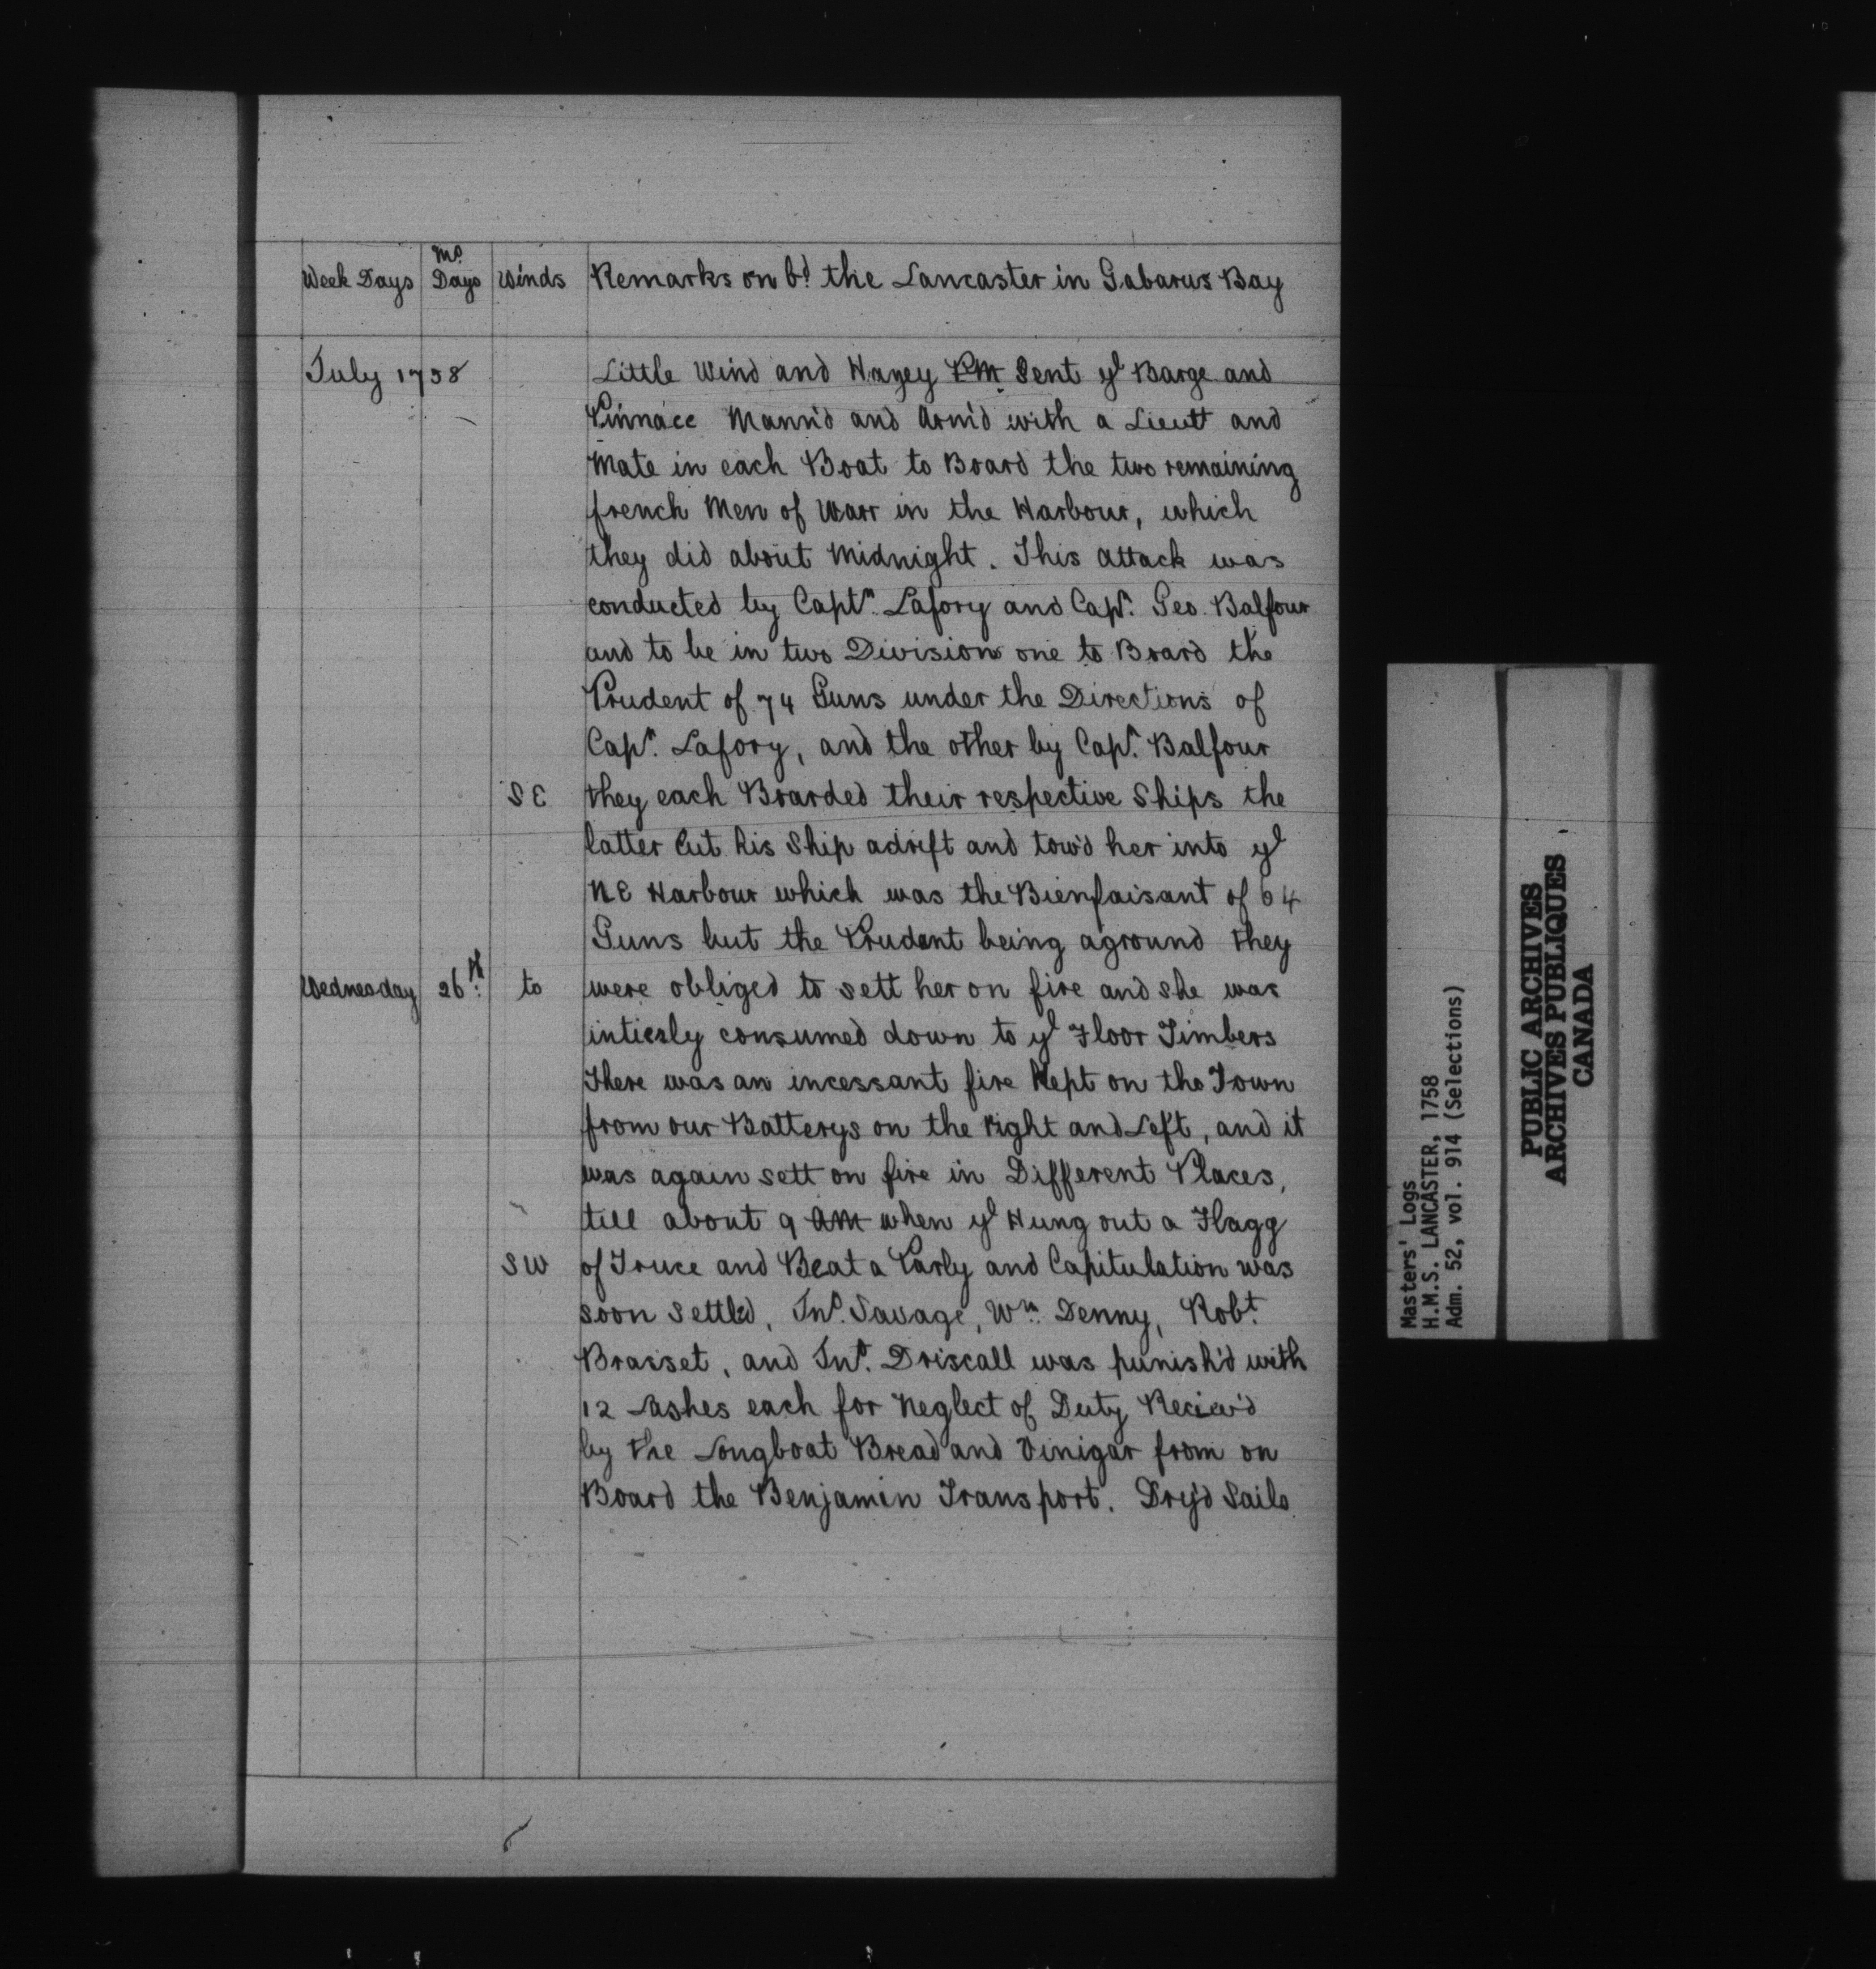 Week Days Mo. Days Winds Remarks on bd. the Lancaster in Gabarus Bay
July 1758 Little Wind and Hazey PM Sent ye Barge and
Pinnace Mann'd and Arm'd with a Lieutt and
Mate in each Boat to Board the two remaining
french Men of Warr in the Harbour, which
they did about Midnight. This attack was
conducted by Captn. Lafory and Capn. Geo. Balfour
and to be in two Divisions one to Board the
Prudent of 74 Guns under the Directions of
Capn. Lafory, and the other by Capn. Balfour
SE they each Boarded their respective Ships the
latter Cut his Ship adrift and tow'd her into ye
NE Harbour which was the Bienfaisant of 64
Guns but the Prudent being aground they
Wednesday 26th. to were obliged to sett her on fire and she was
intierly consumed down to ye Floor Timbers
There was an incessant fire Kept on the Town
from our Batterys on the Right and Left, and it
was again sett on fire in Different Places,
till about 9 AM when ye Hung out a Flagg
SW of Truce and Beat a Parly and Capitulation was
soon Settled, Jno. Savage, Wm. Denny, Robt.
Brasset, and Jno. Driscall was punish'd with
12 Lashes each for Neglect of Duty Reciev'd
by the Longboat Bread and Vinigar from on
Board the Benjamin Transport. Dry'd Sails
Masters' Logs
H.M.S. LANCASTER, 1758
Adm. 52, vol. 914 (Selections)
PUBLIC ARCHIVES
ARCHIVES PUBLIQUES
CANADA